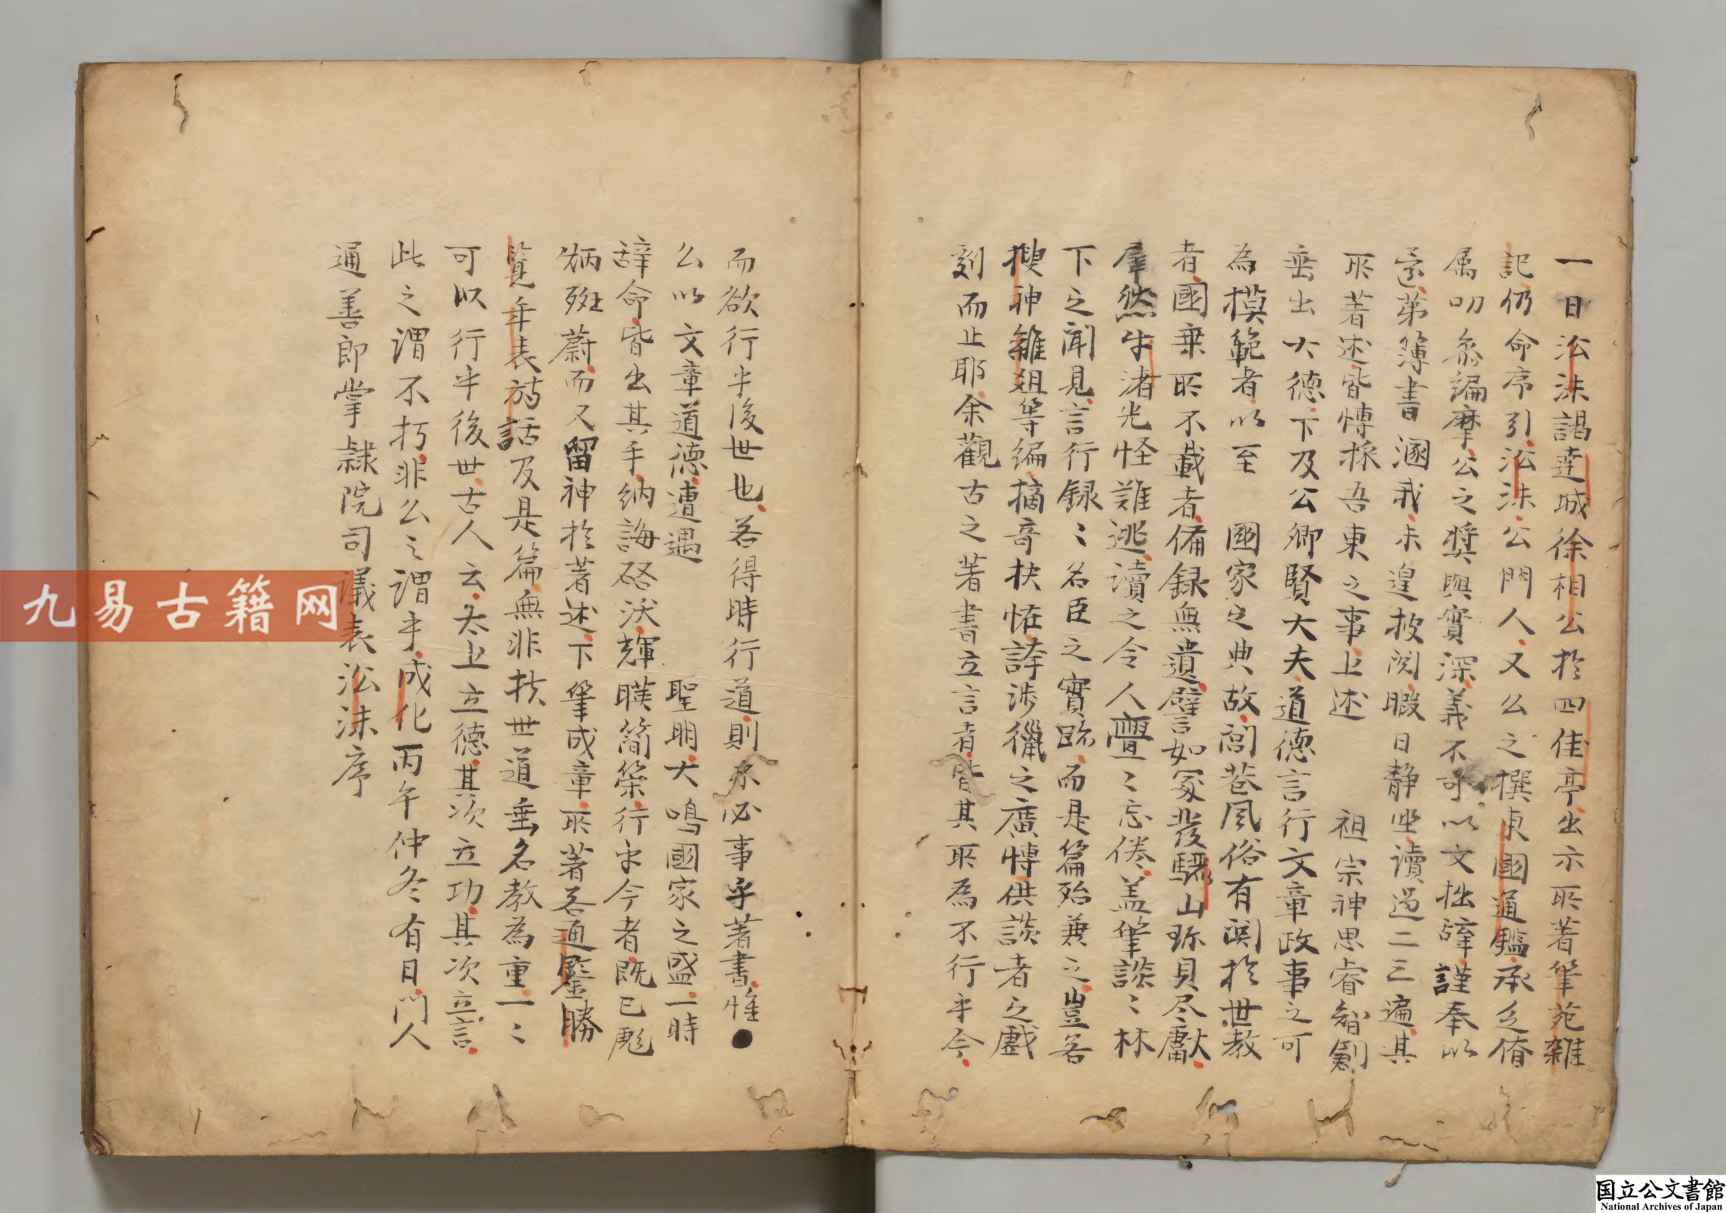 一日沿洙謁達城徐相公於四佳亭出示所著筆苑雜
記仍命序引沿洙公門人又公之撰東國通鑑承乏脩
属叨參論摩公之奬與實深義不可以文拙辞謹奉以
還第簿書溷我未遑披閱暇日静坐讀過二三遍其
所著述皆博採吾東之事上述 祖宗神思睿智創
垂出大德下及公卿賢大夫道德言行文章政事之可
為模範者以至 國家之典故閭巷風俗有関於世教
者國乗所不載者備録無遺譬如冢發驪山珎貝尽獻
犀然牛渚光怪難逃讀之令人亹〻忘倦盖筆談〻林
下之聞見言行録〻名臣之實跡而是篇殆兼之豈若
搜神雜俎等編摘奇抉恠誇涉獵之廣愽供談者之戲
刻而止耶余觀古之著書立言者皆其所為不行乎今
而欲行乎後世也若得時行道則亦必事乎著書惟
公以文章道德遭遇 聖明大鳴國家之盛一時
辞命皆出其手納誨啓沃輝暎簡策行乎今者既已彪
炳斑蔚而又留神於著述下筆成章所著若通鑒勝
覽年表詩話及是篇無非扶世道垂名教為重一〻
可以行乎後世古人云太上立德其次立功其次立言
此之謂不朽非公之謂乎成化丙午仲冬有日門人
通善郎掌隷院司議表沿洙序
九易古籍网
国立公文書館
National Archives of Japan